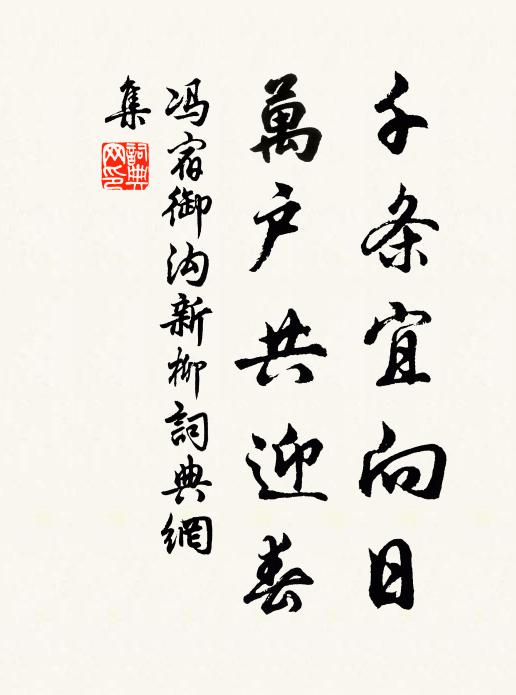 千条宜向日
萬户共迎春
冯宿御沟新柳詞典網
集
詞典
网印